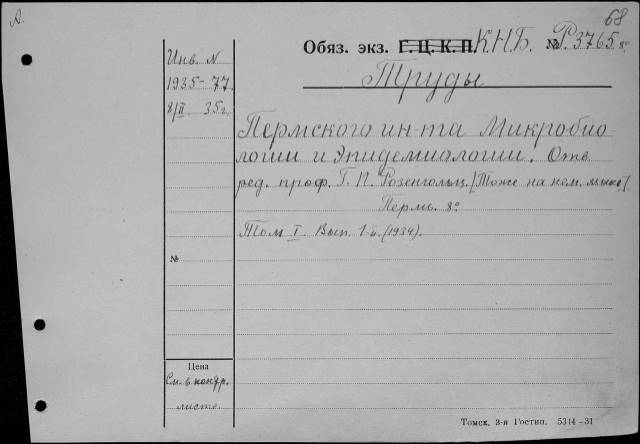 А.
68
Обяз. экз. Г.Ц.К.П. К.Н.Б. № Р.3765. 8º
Инв. N
1935-77.
8/II 35г.
Труды
Пермского ин-та Микробио
логии и Эпидемиологии. Отв.
ред. проф. Г. П. Розенгольц. [Тоже на нем. языке].
Пермь. 8º
Том I. Вып. 1-й. (1934).
№
Цена
См. в контр.
листе.
Томск, 3-я Гостип. 5314-31